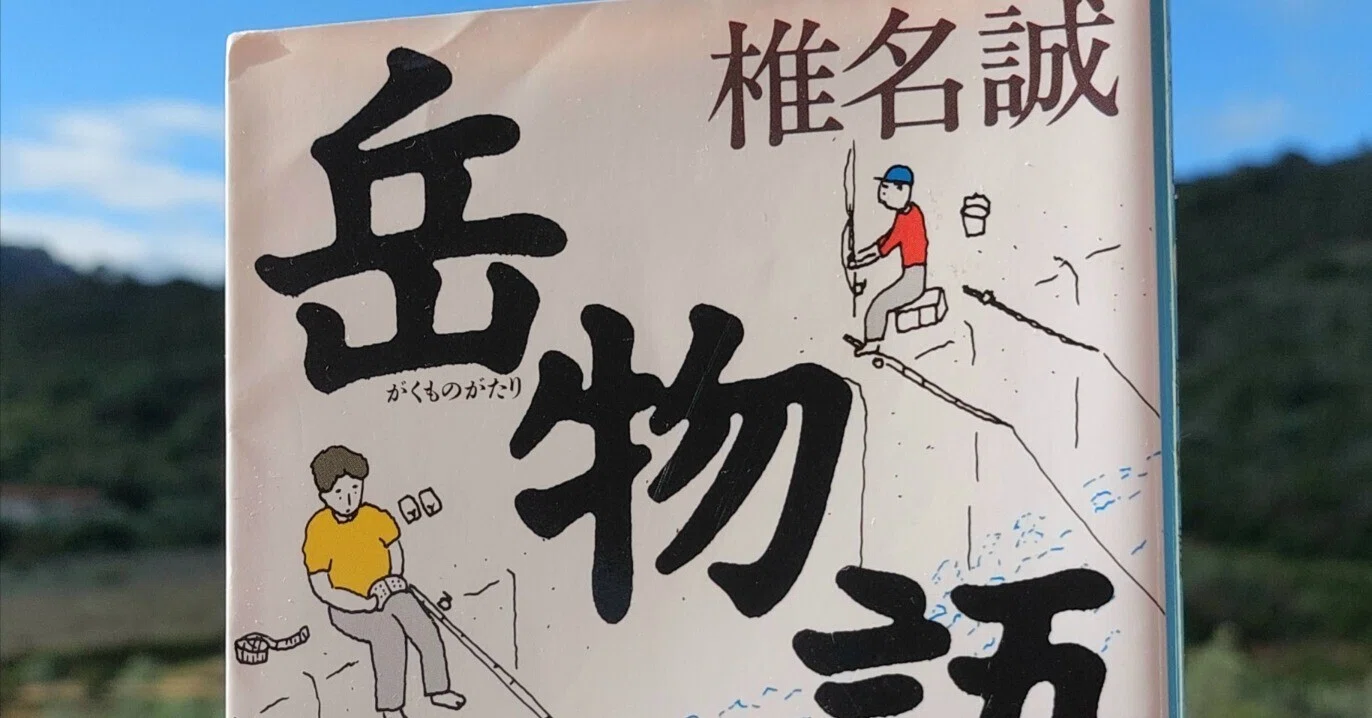 椎名誠
岳物語
がくものがたり